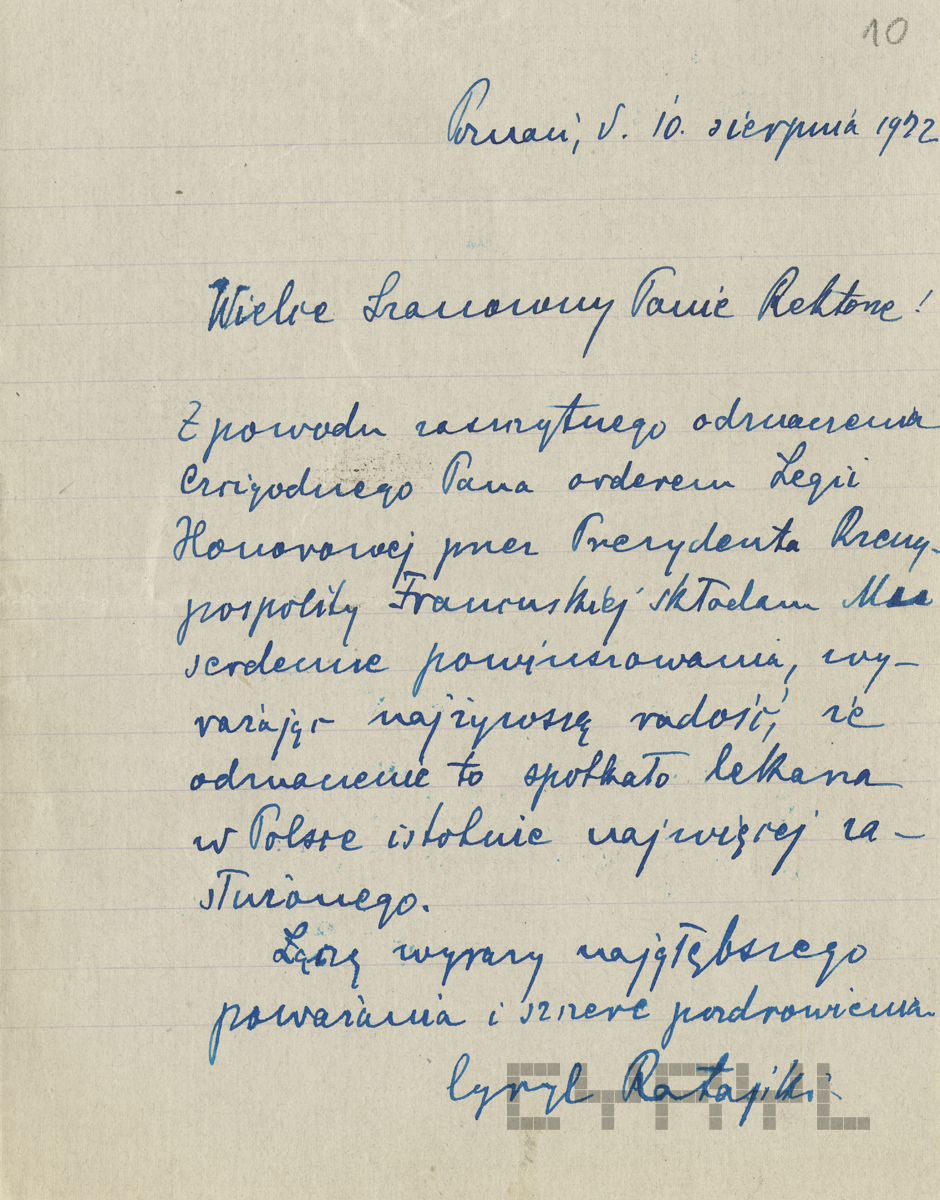 10
Poznań, d. 10. sierpnia 1922
Wielce Szanowny Panie Rektorze!
Z powodu zaszczytnego odznaczenia
Czcigodnego Pana orderem Legii
Honorowej przez Prezydenta Rzeczy-
pospolity Francuskiej składam Mu
serdeczne powinszowania, wy-
rażając najżywszą radość, że
odznaczenie to spotkało lekarza
w Polsce istotnie najwięcej za-
służonego.
Łączę wyrazy najgłębszego
poważania i szczere pozdrowienia.
Cyryl Ratajski
CYRYL